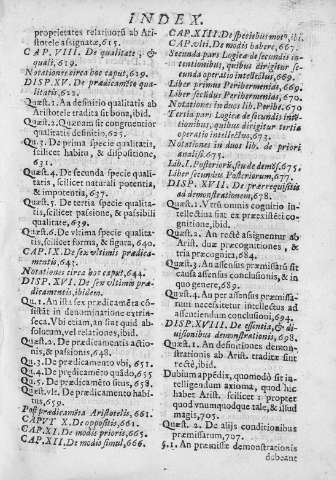 INDEX.
proprietates relatiuorũ ab Ari-
stotele assignatæ, 615.
CAP. VIII. De qualitate, &
quali, 619.
Notationes circa hoc caput, 629.
DISP. XV. De prædicamẽto qua-
litatis, 622.
Quæst. 1. An definitio qualitatis ab
Aristotele tradita sit bona, ibid.
Quæst. 2. Quænam sit conuenientior
qualitatis definitio, 625.
Quæst. 3. De prima specie qualitatis,
scilicet habitu, & dispositione,
631.
Quæst. 4. De secunda specie qualita-
tis, scilicet naturali potentia, &
impotentia, 637.
Quæst. 5. De tertia specie qualita-
tis, scilicet passione, & passibili
qualitate, 639.
Quæst. 6. De vltima specie qualitatis,
scilicet forma, & figura, 640.
CAP. IX. De sex vltimis prædica-
mentis, 643.
Notationes circa hoc caput, 644.
DISP. XVI. De sex vltimis præ-
dicamentis, ibidem.
Qu. 1. An ista sex prædicamẽta cõ-
sistãt in denominatione extrin-
seca. Vbi etiam, an sint quid abso-
lutum, vel relationes, ibid.
Quæst. 2. De prædicamentis actio-
nis, & passionis, 648.
Qu. 3. De prædicamento vbi, 651.
Qu. 4. De prædicamẽto quãdo, 655.
Qu. 5. De prædicamẽto situs, 658.
Quæst. vlt. De prædicamento habi-
tus, 659.
Post prædicamẽta Aristotelis, 661.
CAPVT X. De oppositis, 661.
CAP. XI. De modis prioris, 665.
CAP. XII. De modis simul, 666.
CAP. XIII. De speciebus mot⁹, ibi.
CAP. vlti. De modis habere, 667.
Secunda pars Logicæ de secundis in-
tentionibus, quibus dirigitur se-
cunda operatio intellectus, 669.
Liber primus Perihermenias, 669.
Liber secũdus Perihermenias, 670.
Notationes in duos lib. Perihi. 670
Tertia pars Logicæ de secundis inten-
tionibus, quibus dirigitur tertia
operatio intellectus, 673.
Notationes in duos lib. de priori
analisi, 673.
Lib. I. Posteriorũ, seu de demõst. 675.
Liber secundus Posteriorum, 677.
DISP. XVII. De prærrequisitis
ad demonstrationem, 678.
Quæst. 1. Vtrũ omnis cognitio in-
tellectiua fiat ex præexistẽti co-
gnitione, ibid.
Quæst. 2. An rectè assignentur ab
Arist. duæ præcognitiones, &
tria præcognita, 684.
Quæst. 3. An assensus præmissarũ sit
causa assensus conclusionis, & in
quo genere, 689.
Quæst. 4. An per assensus præmissa-
rum necessitetur intellectus ad
assentiendum conclusioni, 694.
DISP. XVIII. De essentia, & di-
uisionibus demonstrationis, 698.
Quæst. 1. An definitiones demon-
strationis ab Arist. traditæ sint
rectè, ibid.
Dubium appẽdix, quomodo sit in-
telligendum axioma, quod hic
habet Arist. scilicet: propter
quod vnumquodque tale, & illud
magis, 705.
Quæst. 2. De alijs conditionibus
præmissarum, 707.
§. 1. An præmissæ demonstrationis
debeant